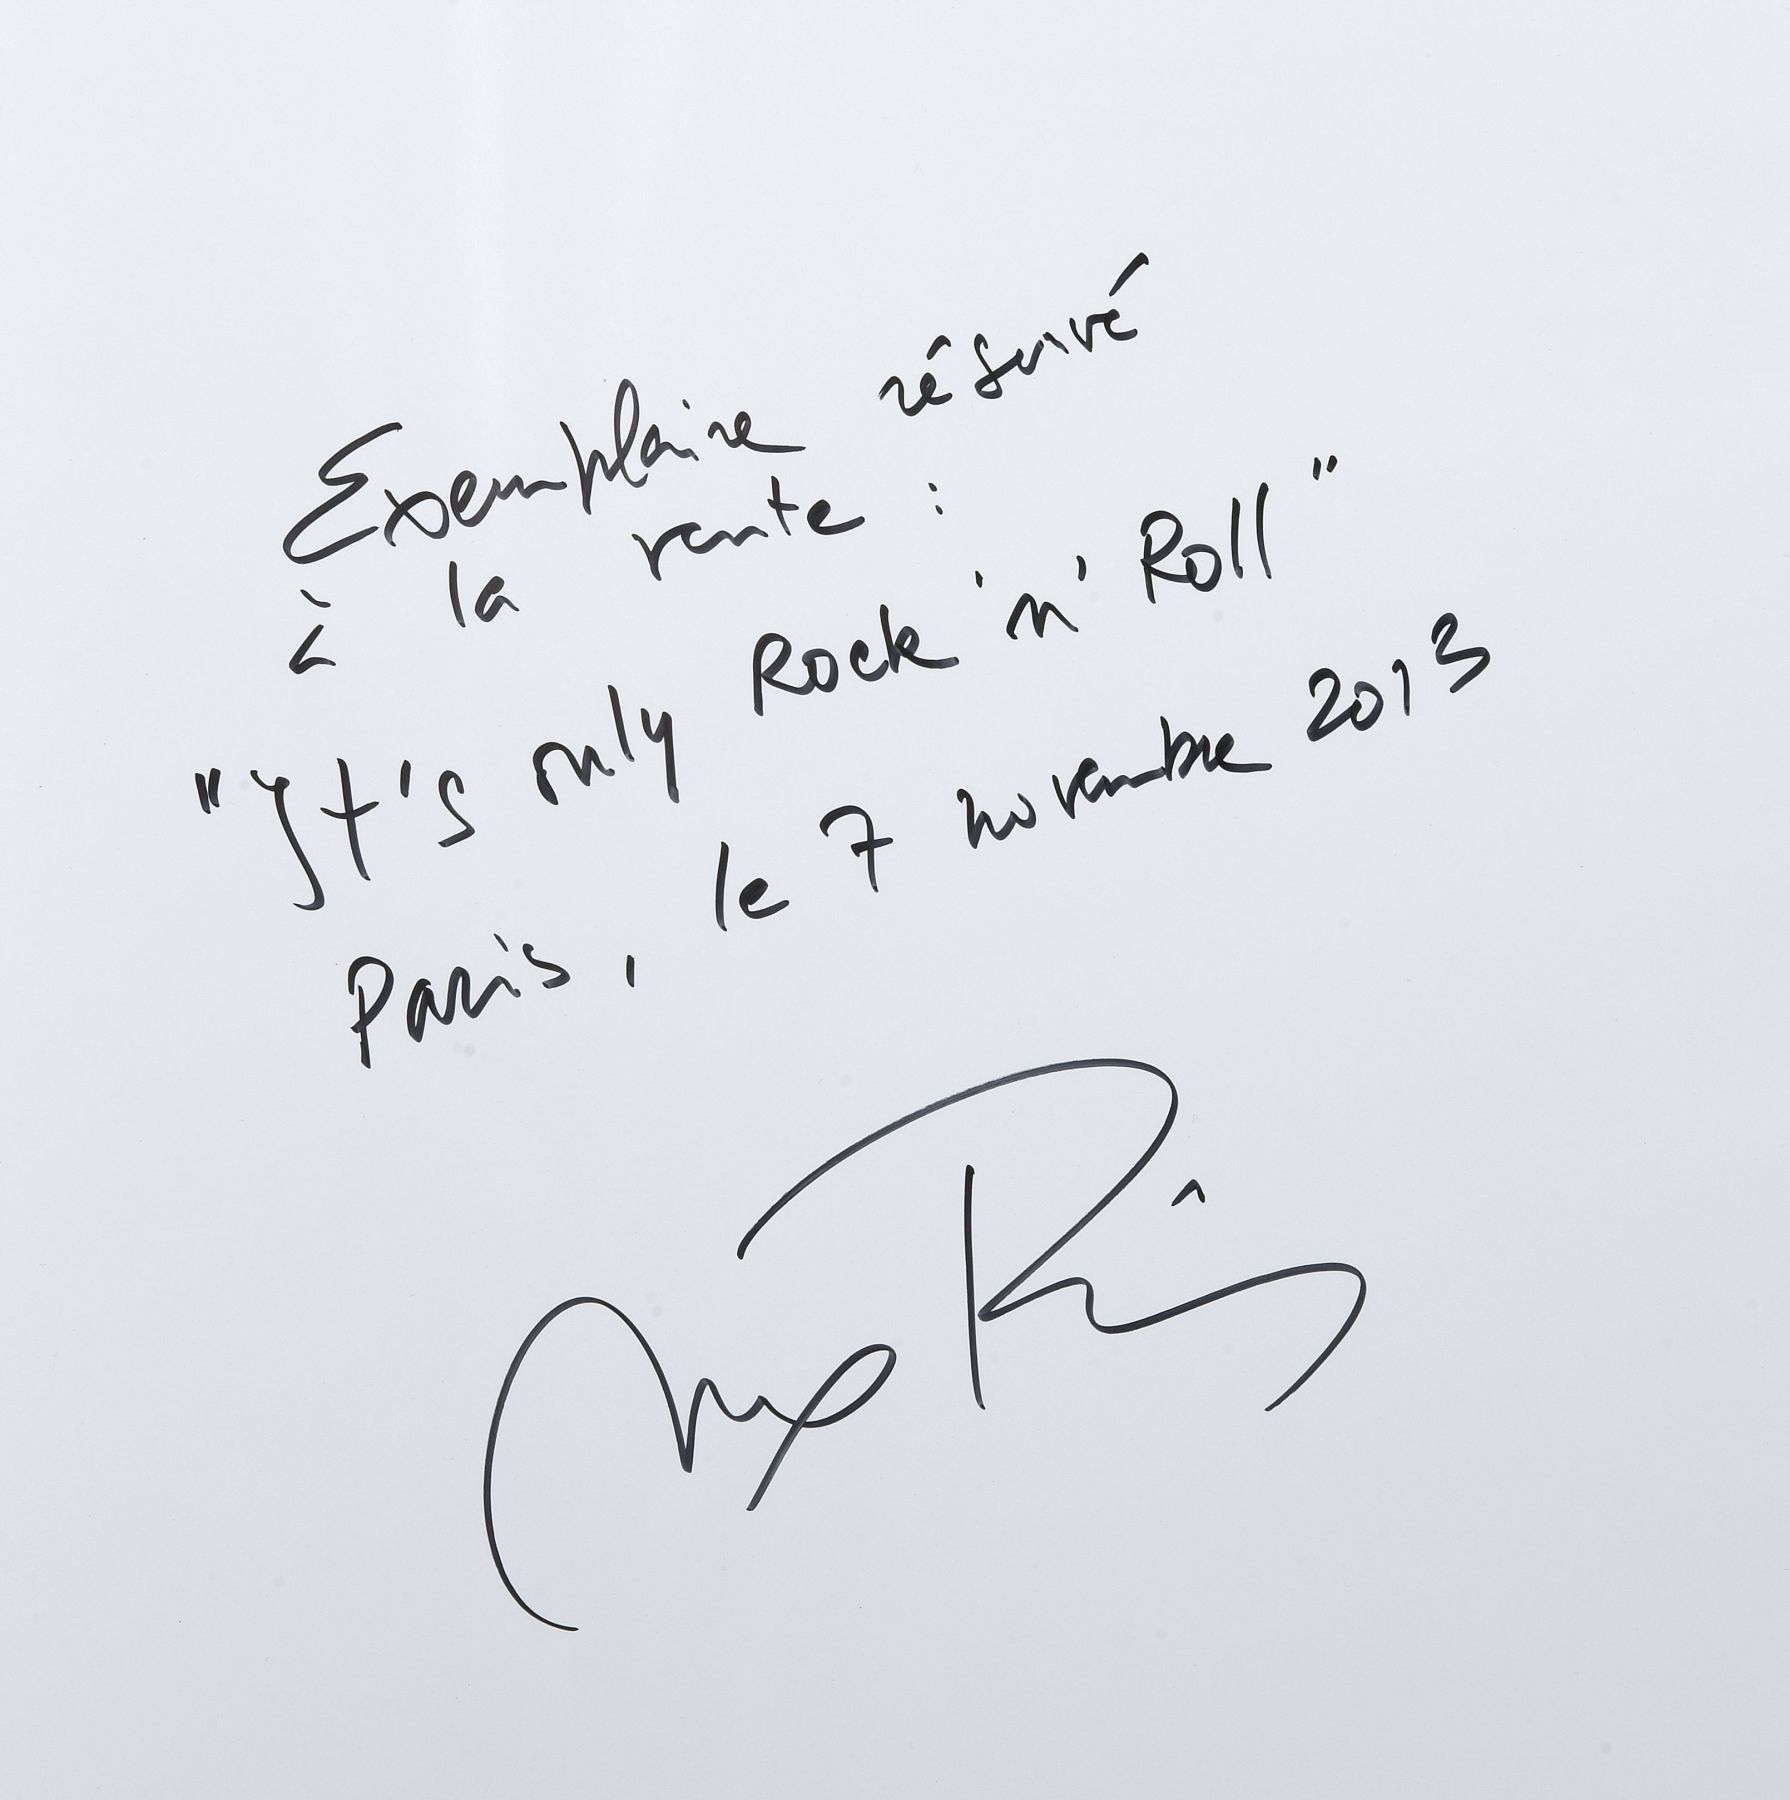 Exemplaire réservé
à la vente :
"It's only Rock 'n' Roll"
Paris, le 7 novembre 2013